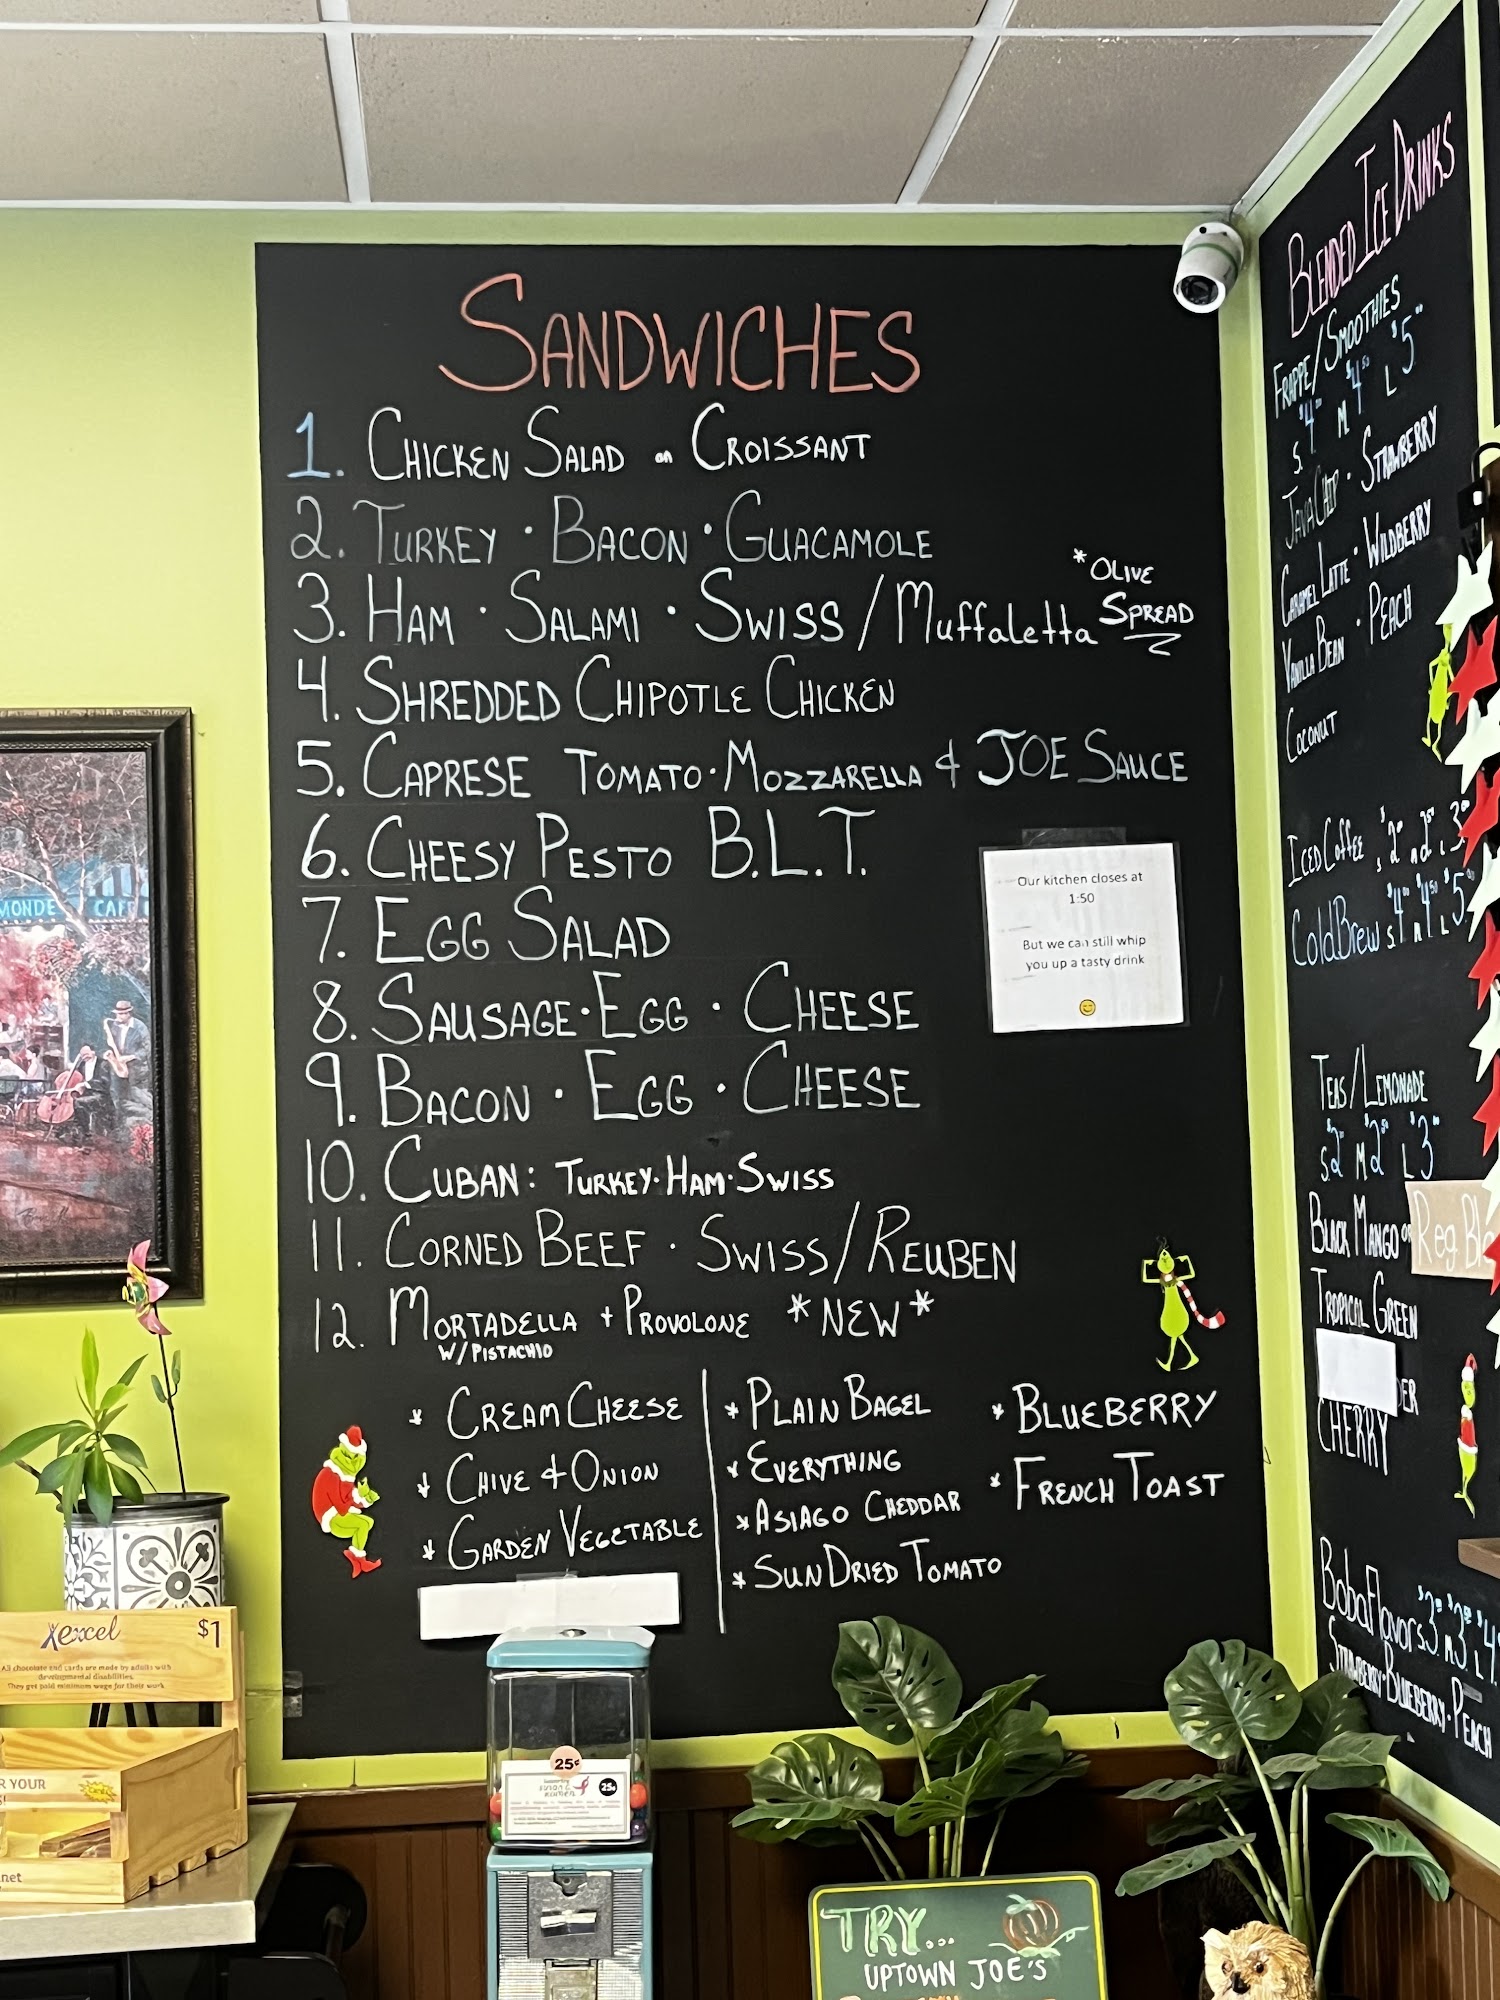 SANDWICHES
1. CHICKEN SALAD on CROISSANT
2. TURKEY · BACON · GUACAMOLE
3. HAM · SALAMI · SWISS / Muffaletta
*OLIVE
SPREAD
4. SHREDDED CHIPOTLE CHICKEN
5. CAPRESE TOMATO · MOZZARELLA & JOE SAUCE
6. CHEESY PESTO B.L.T.
7. EGG SALAD
8. SAUSAGE · EGG · CHEESE
9. BACON · EGG · CHEESE
10. CUBAN: TURKEY · HAM · SWISS
11. CORNED BEEF · SWISS / REUBEN
12. MORTADELLA + PROVOLONE *NEW*
W/ PISTACHIO
* CREAM CHEESE
* CHIVE & ONION
* GARDEN VEGETABLE
* PLAIN BAGEL
* EVERYTHING
* ASIAGO CHEDDAR
* SUN DRIED TOMATO
* BLUEBERRY
* FRENCH TOAST
Our kitchen closes at
1:50
But we can still whip
you up a tasty drink
BLENDED ICE DRINKS
FRAPPE / SMOOTHIES
S. $4.00 M $4.50 L $5.00
JAVA CHIP · STRAWBERRY
CARAMEL LATTE · WILDBERRY
VANILLA BEAN · PEACH
COCONUT
ICED COFFEE S $2 M $2 L $3
COLD BREW S $4.00 M $4.50 L $5.00
TEAS / LEMONADE
S $2 M $2.50 L $3
BLACK MANGO or Reg. Bl
TROPICAL GREEN
ER
CHERRY
Boba Flavor S $3 M $3 L $4
STRAWBERRY · BLUEBERRY · PEACH
MONDE CAF
xexcel $1
All chocolate and cards are made by adults with
developmental disabilities.
They get paid minimum wage for their work
R YOUR
net
25¢
25¢
TRY...
UPTOWN JOE'S